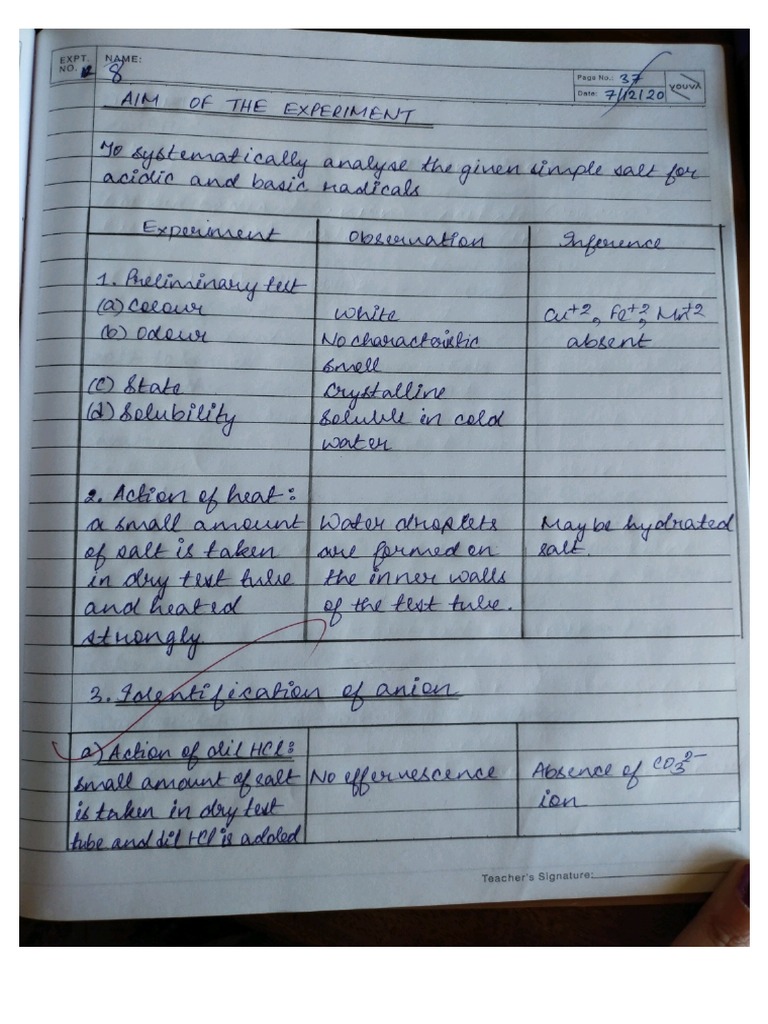 EXPT. NO. 8
NAME:
Page No.: 37
Date: 7/12/20
YOUVA
AIM OF THE EXPERIMENT
To systematically analyse the given simple salt for
acidic and basic radicals
Experiment Observation Inference
1. Preliminary test
(a) Colour White Cu+2, Fe+2, Mn+2
(b) Odour No characteristic absent
smell
(c) State Crystalline
(d) Solubility Soluble in cold
water
2. Action of heat:
a small amount Water droplets May be hydrated
of salt is taken are formed on salt.
in dry test tube the inner walls
and heated of the test tube.
strongly
3. Identification of anion
a) Action of dil HCl:
small amount of salt No effervescence Absence of CO3²⁻
is taken in dry test ion
tube and dil HCl is added
Teacher's Signature: